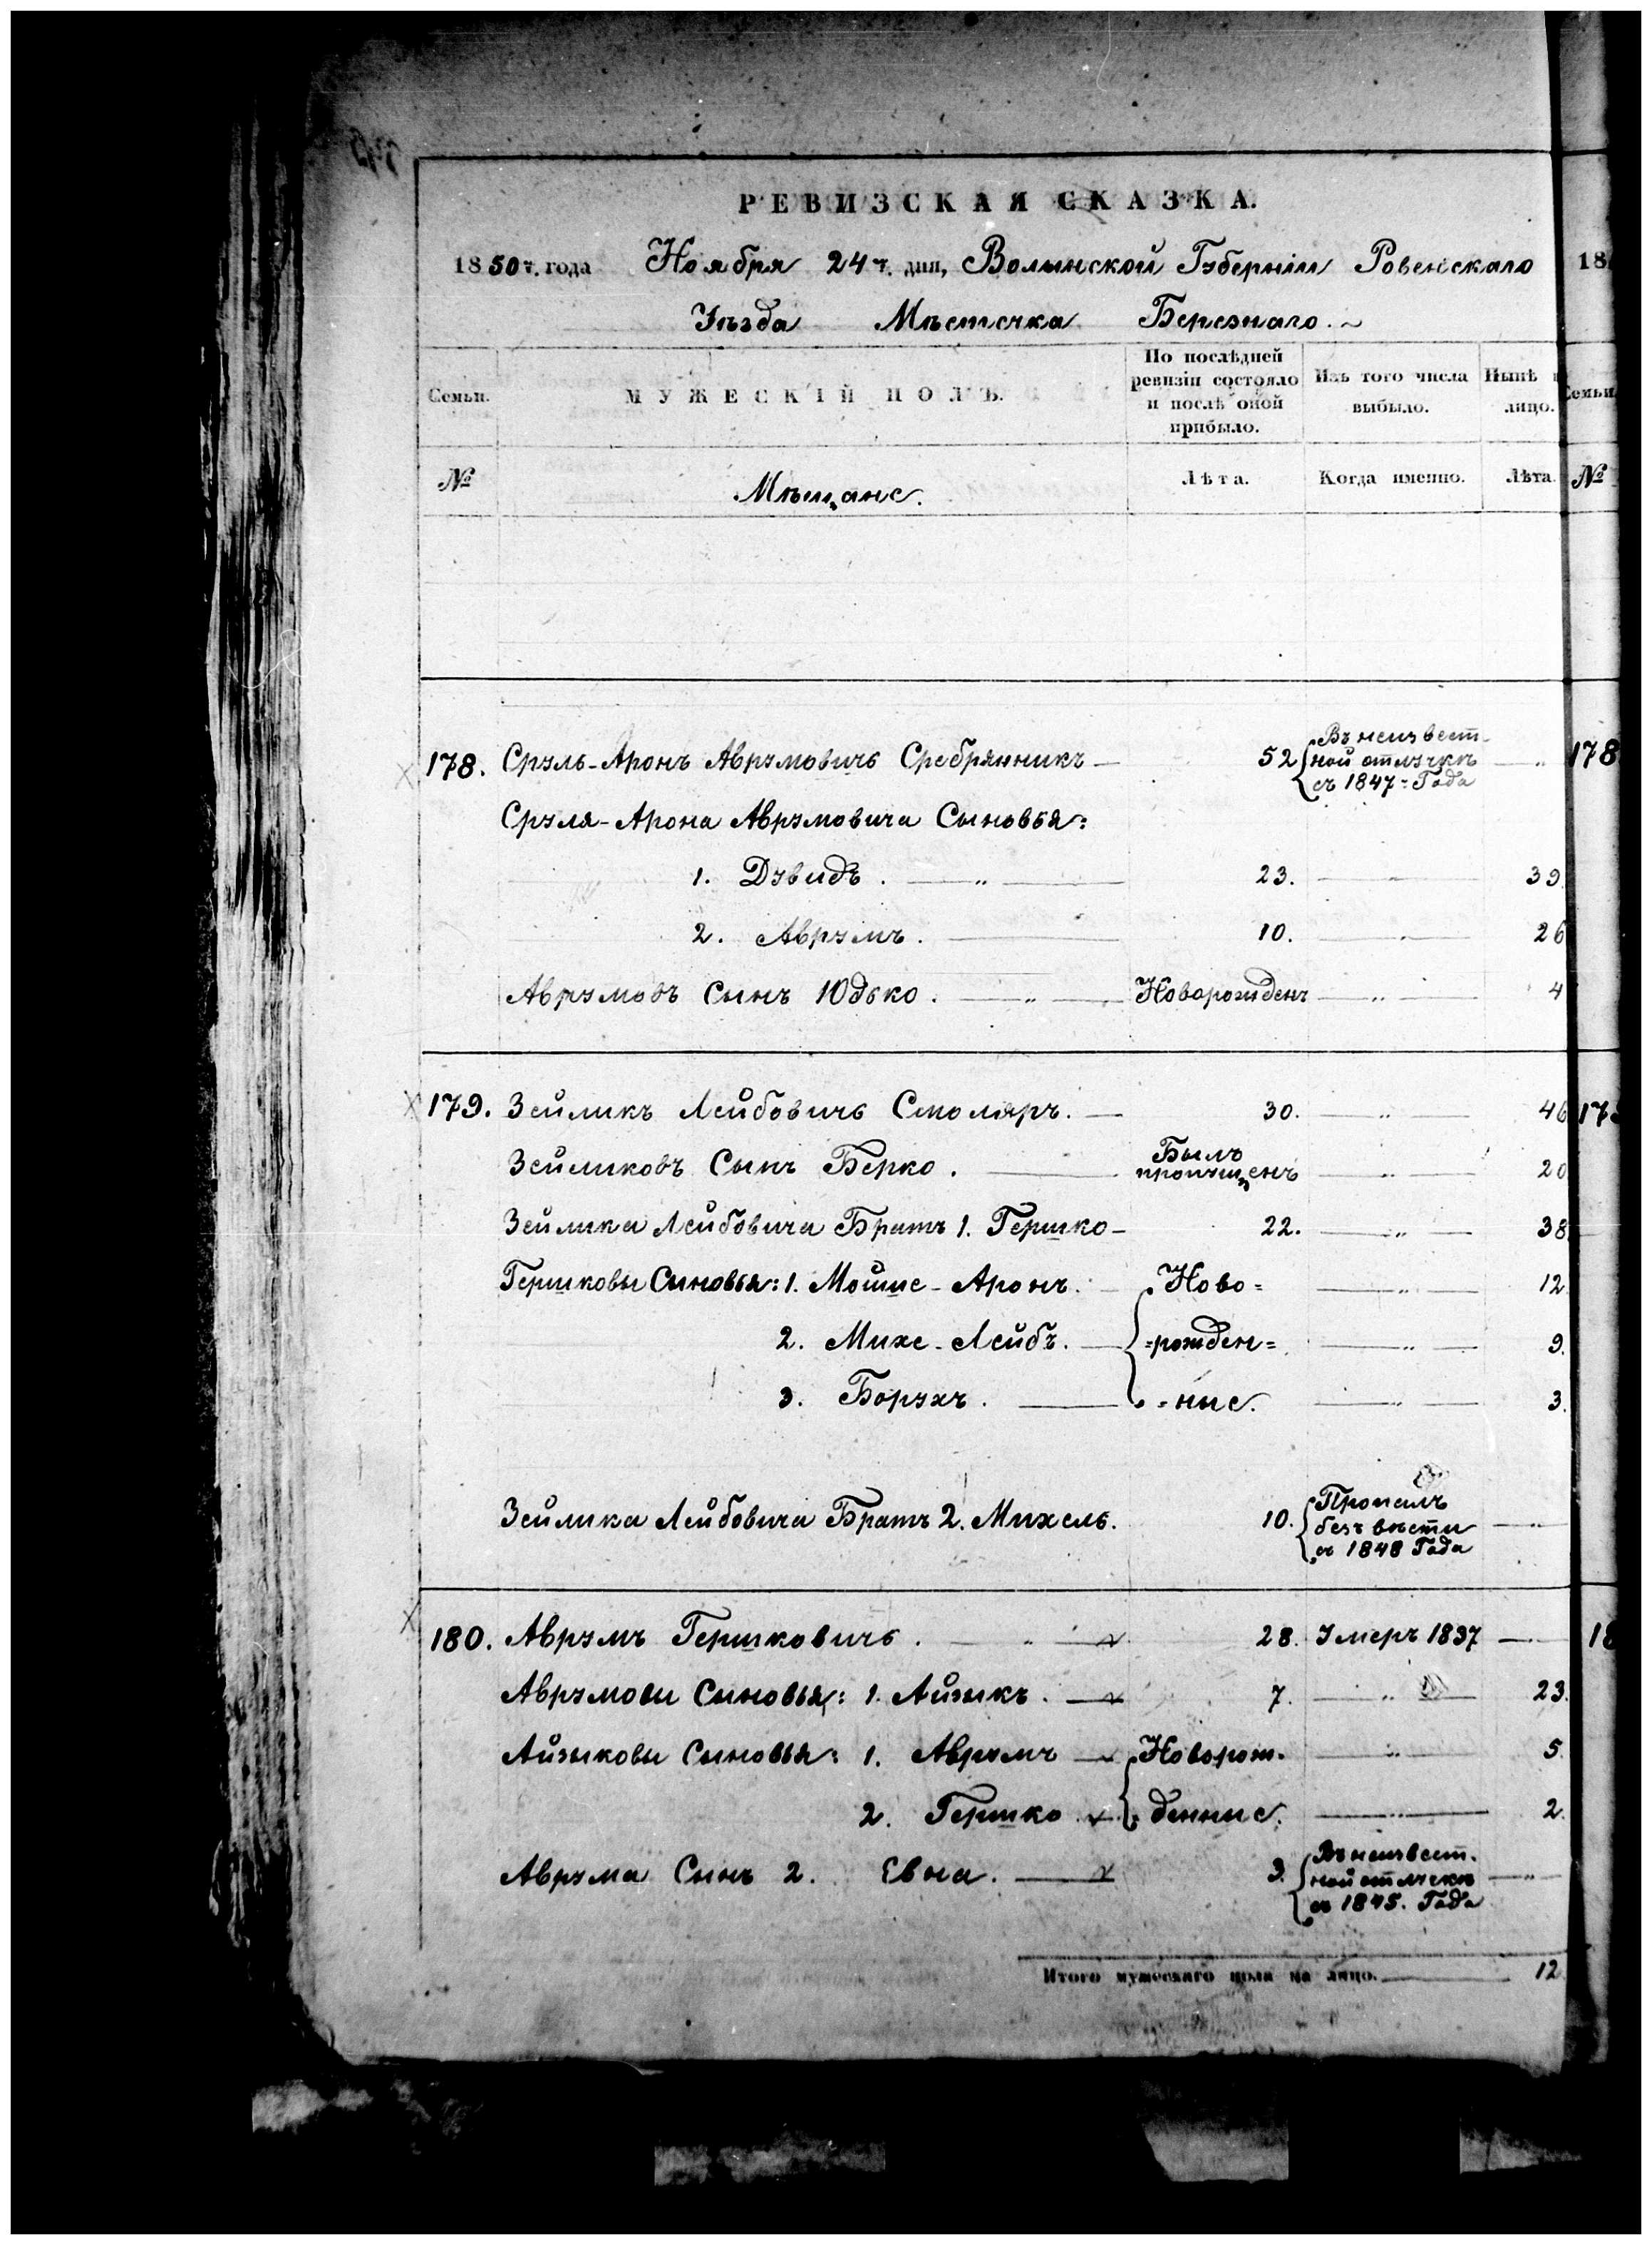 РЕВИЗСКАЯ СКАЗКА.
1850 г. года Ноября 24 г. дня, Волынской Губерніи Ровенскаго
Уѣзда Мѣстечка Березнаго. ~
Семьи. МУЖЕСКІЙ ПОЛЪ. По послѣдней ревизіи состояло и послѣ оной прибыло. Изъ того числа выбыло. Нынѣ лицо.
№ Мѣщане. Лѣта. Когда именно. Лѣта.
178. Сруль-Аронъ Аврумовичь Сребрянникъ — 52 Въ неизвест-
ной отлучкѣ
съ 1847 = Года — „
Сруля-Арона Аврумовича Сыновья:
1. Дувидъ. — „ — 23. — 39
2. Аврумъ. — 10. — „ — 26
Аврумовъ Сынъ Юдько. — „ — Новорожденъ — „ — 4
179. Зейликъ Лейбовичь Смоляръ. — 30. — „ — 46
Зейликовъ Сынъ Берко. — Былъ
пропущенъ — „ — 20
Зейлика Лейбовича Братъ 1. Гершко — 22. — „ — 38
Гершковы Сыновья: 1. Мошше-Аронъ. — Ново= — „ — 12
2. Михе-Лейбъ. — =рожден= — „ — 9.
3. Борухъ. — =ные. — „ — 3.
Зейлика Лейбовича Братъ 2. Михель. 10. Пропалъ
безъ вѣсти
съ 1848 Года — „
180. Аврумъ Гершковичь. — „ — 28. Умеръ 1837 —
Аврумовы Сыновья: 1. Айзыкъ. — 7. — „ — 23.
Айзыковы Сыновья: 1. Аврумъ — Новорож- — „ — 5
2. Гершко денные. — „ — 2.
Аврума Сынъ 2. Евна. — 3. Въ неизвест-
ной отлучкѣ
съ 1845. Года — „
Итого мужескаго пола на лицо. — 12
18
Семьи
№
178